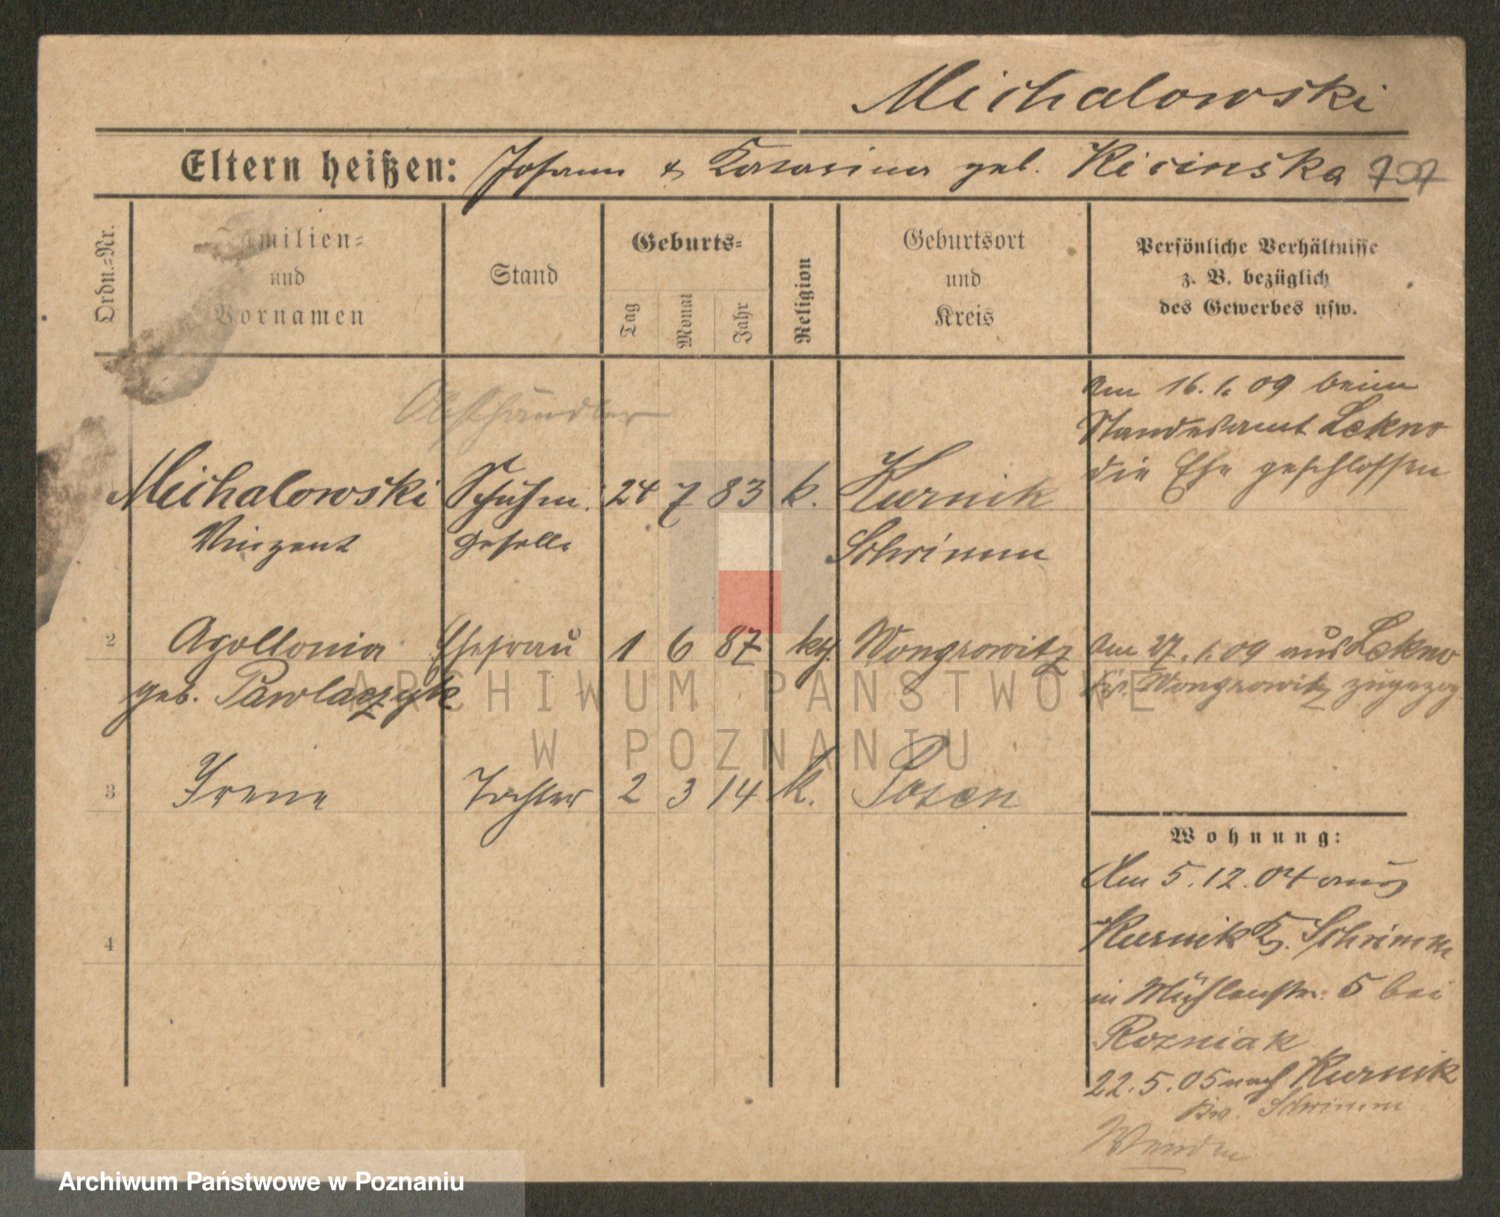 Michalowski
Eltern heißen: Johann & Katarina geb. Kicinska 797
Ordn.-Nr.
Familien-
und
Vornamen
Stand
Geburts-
Tag
Monat
Jahr
Religion
Geburtsort
und
Kreis
Persönliche Verhältnisse
z. B. bezüglich
des Gewerbes usw.
Obsthändler
Am 16.1.09 beim
Standesamt Lekno
die Ehe geschlossen
Michalowski Schuhm. 24 7 83 k. Kurnik
Vinzent geselle Schrimm
2 Apollonia Ehefrau 1 6 87 kth. Wongrowitz Am 27.1.09 aus Lekno
geb. Pawlaczyk Kr. Wongrowitz zugezog
ARCHIWUM PAŃSTWOWE
W POZNANIU
3 Irene Tochter 2 3 14 k. Posen
Wohnung:
Am 5.12.04 aus
4 Kurnik Kr. Schrimm
in Mühlenstr. 5 bei
Rozniak
22.5.05 nach Kurnik
Kr. Schrimm
Wenden
Archiwum Państwowe w Poznaniu